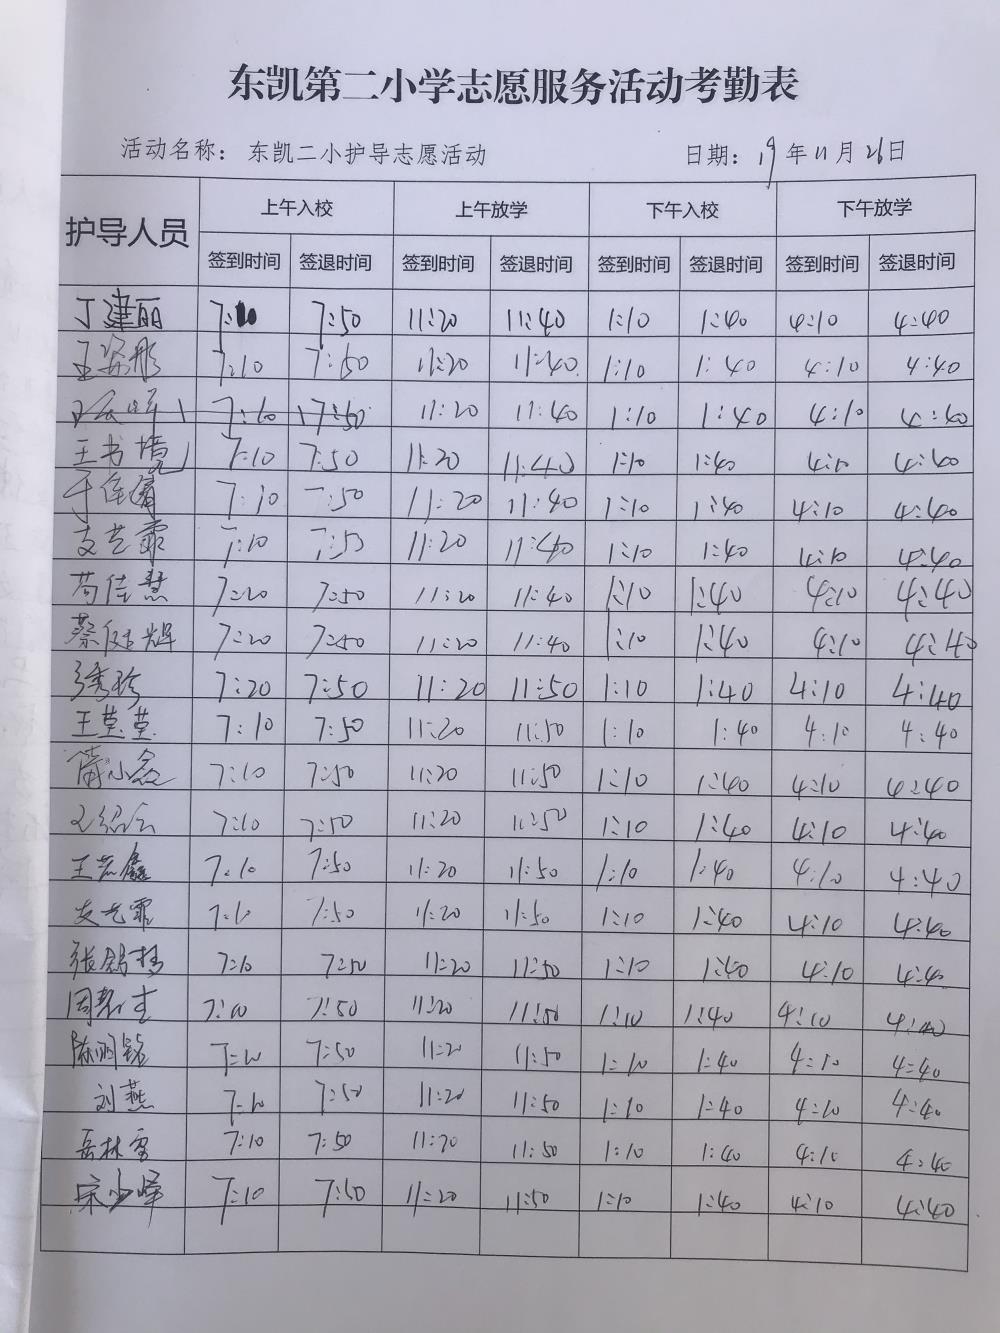 东凯第二小学志愿服务活动考勤表
活动名称：东凯二小护导志愿活动 日期：19年11月26日
护导人员 上午入校 上午放学 下午入校 下午放学
签到时间 签退时间 签到时间 签退时间 签到时间 签退时间 签到时间 签退时间
丁建丽 7:10 7:50 11:20 11:40 1:10 1:40 4:10 4:40
王姿彤 7:10 7:50 11:20 11:40 1:10 1:40 4:10 4:40
7:10 7:50 11:20 11:40 1:10 1:40 4:10 4:40
王书境 7:10 7:50 11:20 11:40 1:10 1:40 4:10 4:40
7:10 7:50 11:20 11:40 1:10 1:40 4:10 4:40
支艺霏 7:10 7:50 11:20 11:40 1:10 1:40 4:10 4:40
苟佳慧 7:20 7:50 11:20 11:40 1:10 1:40 4:10 4:40
蔡延辉 7:20 7:50 11:20 11:40 1:10 1:40 4:10 4:40
7:20 7:50 11:20 11:50 1:10 1:40 4:10 4:40
王莹莹 7:10 7:50 11:20 11:50 1:10 1:40 4:10 4:40
7:10 7:50 11:20 11:50 1:10 1:40 4:10 4:40
7:10 7:50 11:20 11:50 1:10 1:40 4:10 4:40
王艺鑫 7:10 7:50 11:20 11:50 1:10 1:40 4:10 4:40
支艺霏 7:10 7:50 11:20 11:50 1:10 1:40 4:10 4:40
7:10 7:50 11:20 11:50 1:10 1:40 4:10 4:40
7:10 7:50 11:20 11:50 1:10 1:40 4:10 4:40
陈丽铭 7:10 7:50 11:20 11:50 1:10 1:40 4:10 4:40
刘燕 7:10 7:50 11:20 11:50 1:10 1:40 4:10 4:40
岳林雪 7:10 7:50 11:20 11:50 1:10 1:40 4:10 4:40
宋少峰 7:10 7:50 11:20 11:50 1:10 1:40 4:10 4:40